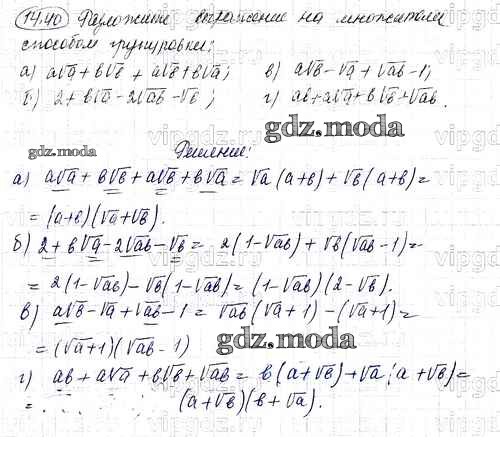 14.40 Разложите выражение на множители
способом группировки:
а) a√a + b√b + a√b + b√a; в) a√b - √a + √ab - 1;
б) 2 + b√a - 2√ab - √b; г) ab + a√a + b√b + √ab.
gdz.moda
gdz.moda
Решение:
а) a√a + b√b + a√b + b√a = √a (a+b) + √b (a+b) =
= (a+b)(√a + √b).
б) 2 + b√a - 2√ab - √b = 2(1-√ab) + √b(√ab - 1) =
= 2(1-√ab) - √b(1-√ab) = (1-√ab)(2-√b).
в) a√b - √a + √ab - 1 = √ab (√a + 1) - (√a + 1) =
= (√a+1)(√ab - 1)
gdz.moda
г) ab + a√a + b√b + √ab = b(a + √b) + √a (a + √b) =
= (a + √b)(b + √a).